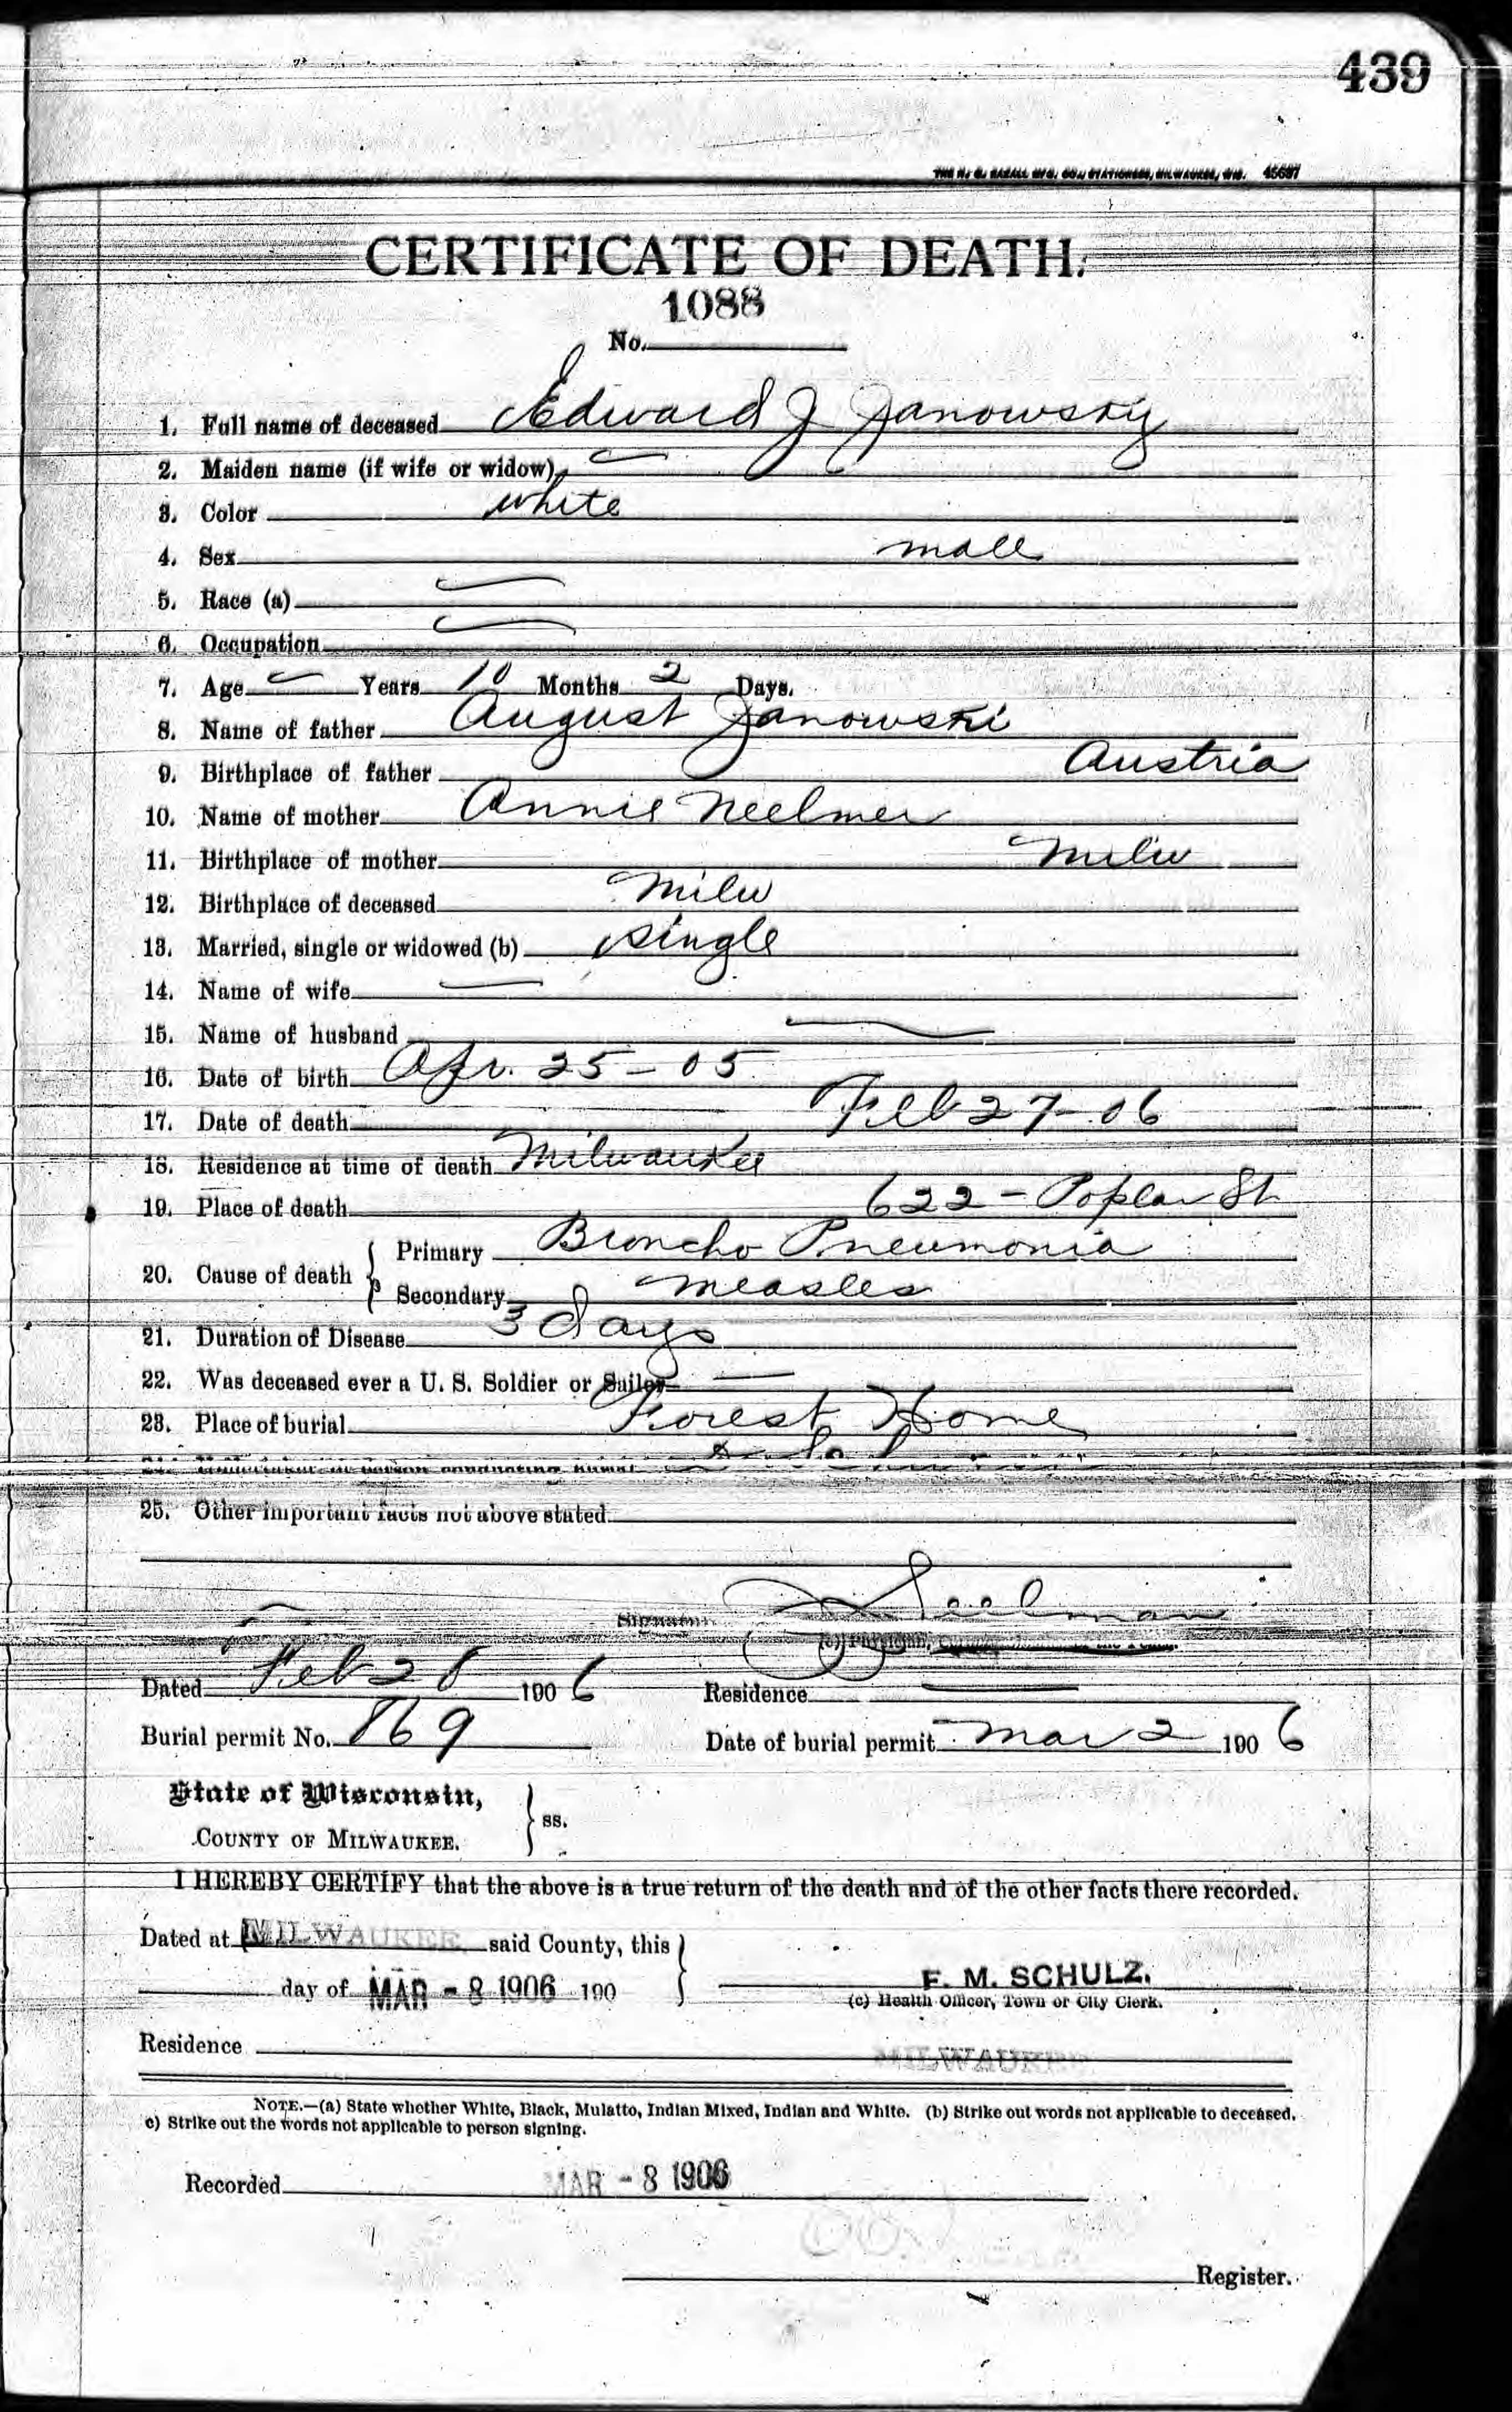 439
THE H. G. RAZALL MFG. CO., STATIONERS, MILWAUKEE, WIS. 45687
CERTIFICATE OF DEATH.
1088
No.
1. Full name of deceased Edward J Janowsky
2. Maiden name (if wife or widow)
3. Color white
4. Sex male
5. Race (a)
6. Occupation
7. Age — Years 10 Months 2 Days.
8. Name of father August Janowski
9. Birthplace of father Austria
10. Name of mother Annie Neelmer
11. Birthplace of mother Milw
12. Birthplace of deceased Milw
13. Married, single or widowed (b) single
14. Name of wife —
15. Name of husband —
16. Date of birth Apr. 25 – 05
17. Date of death Feb 27 – 06
18. Residence at time of death Milwaukee
19. Place of death 622 – Poplar St
20. Cause of death { Primary Broncho Pneumonia
Secondary Measles
21. Duration of Disease 3 days
22. Was deceased ever a U. S. Soldier or Sailor —
23. Place of burial Forest Home
24. Undertaker or person conducting burial
25. Other important facts not above stated
Signature Seelman
(c) Physician,
Dated Feb 28 1906 Residence —
Burial permit No. 869 Date of burial permit Mar 2 1906
State of Wisconsin,
COUNTY OF MILWAUKEE. } ss.
I HEREBY CERTIFY that the above is a true return of the death and of the other facts there recorded.
Dated at MILWAUKEE said County, this
day of MAR - 8 1906 190 } F. M. SCHULZ.
(c) Health Officer, Town or City Clerk.
Residence MILWAUKEE
NOTE.—(a) State whether White, Black, Mulatto, Indian Mixed, Indian and White. (b) Strike out words not applicable to deceased.
c) Strike out the words not applicable to person signing.
Recorded MAR - 8 1906
Register.